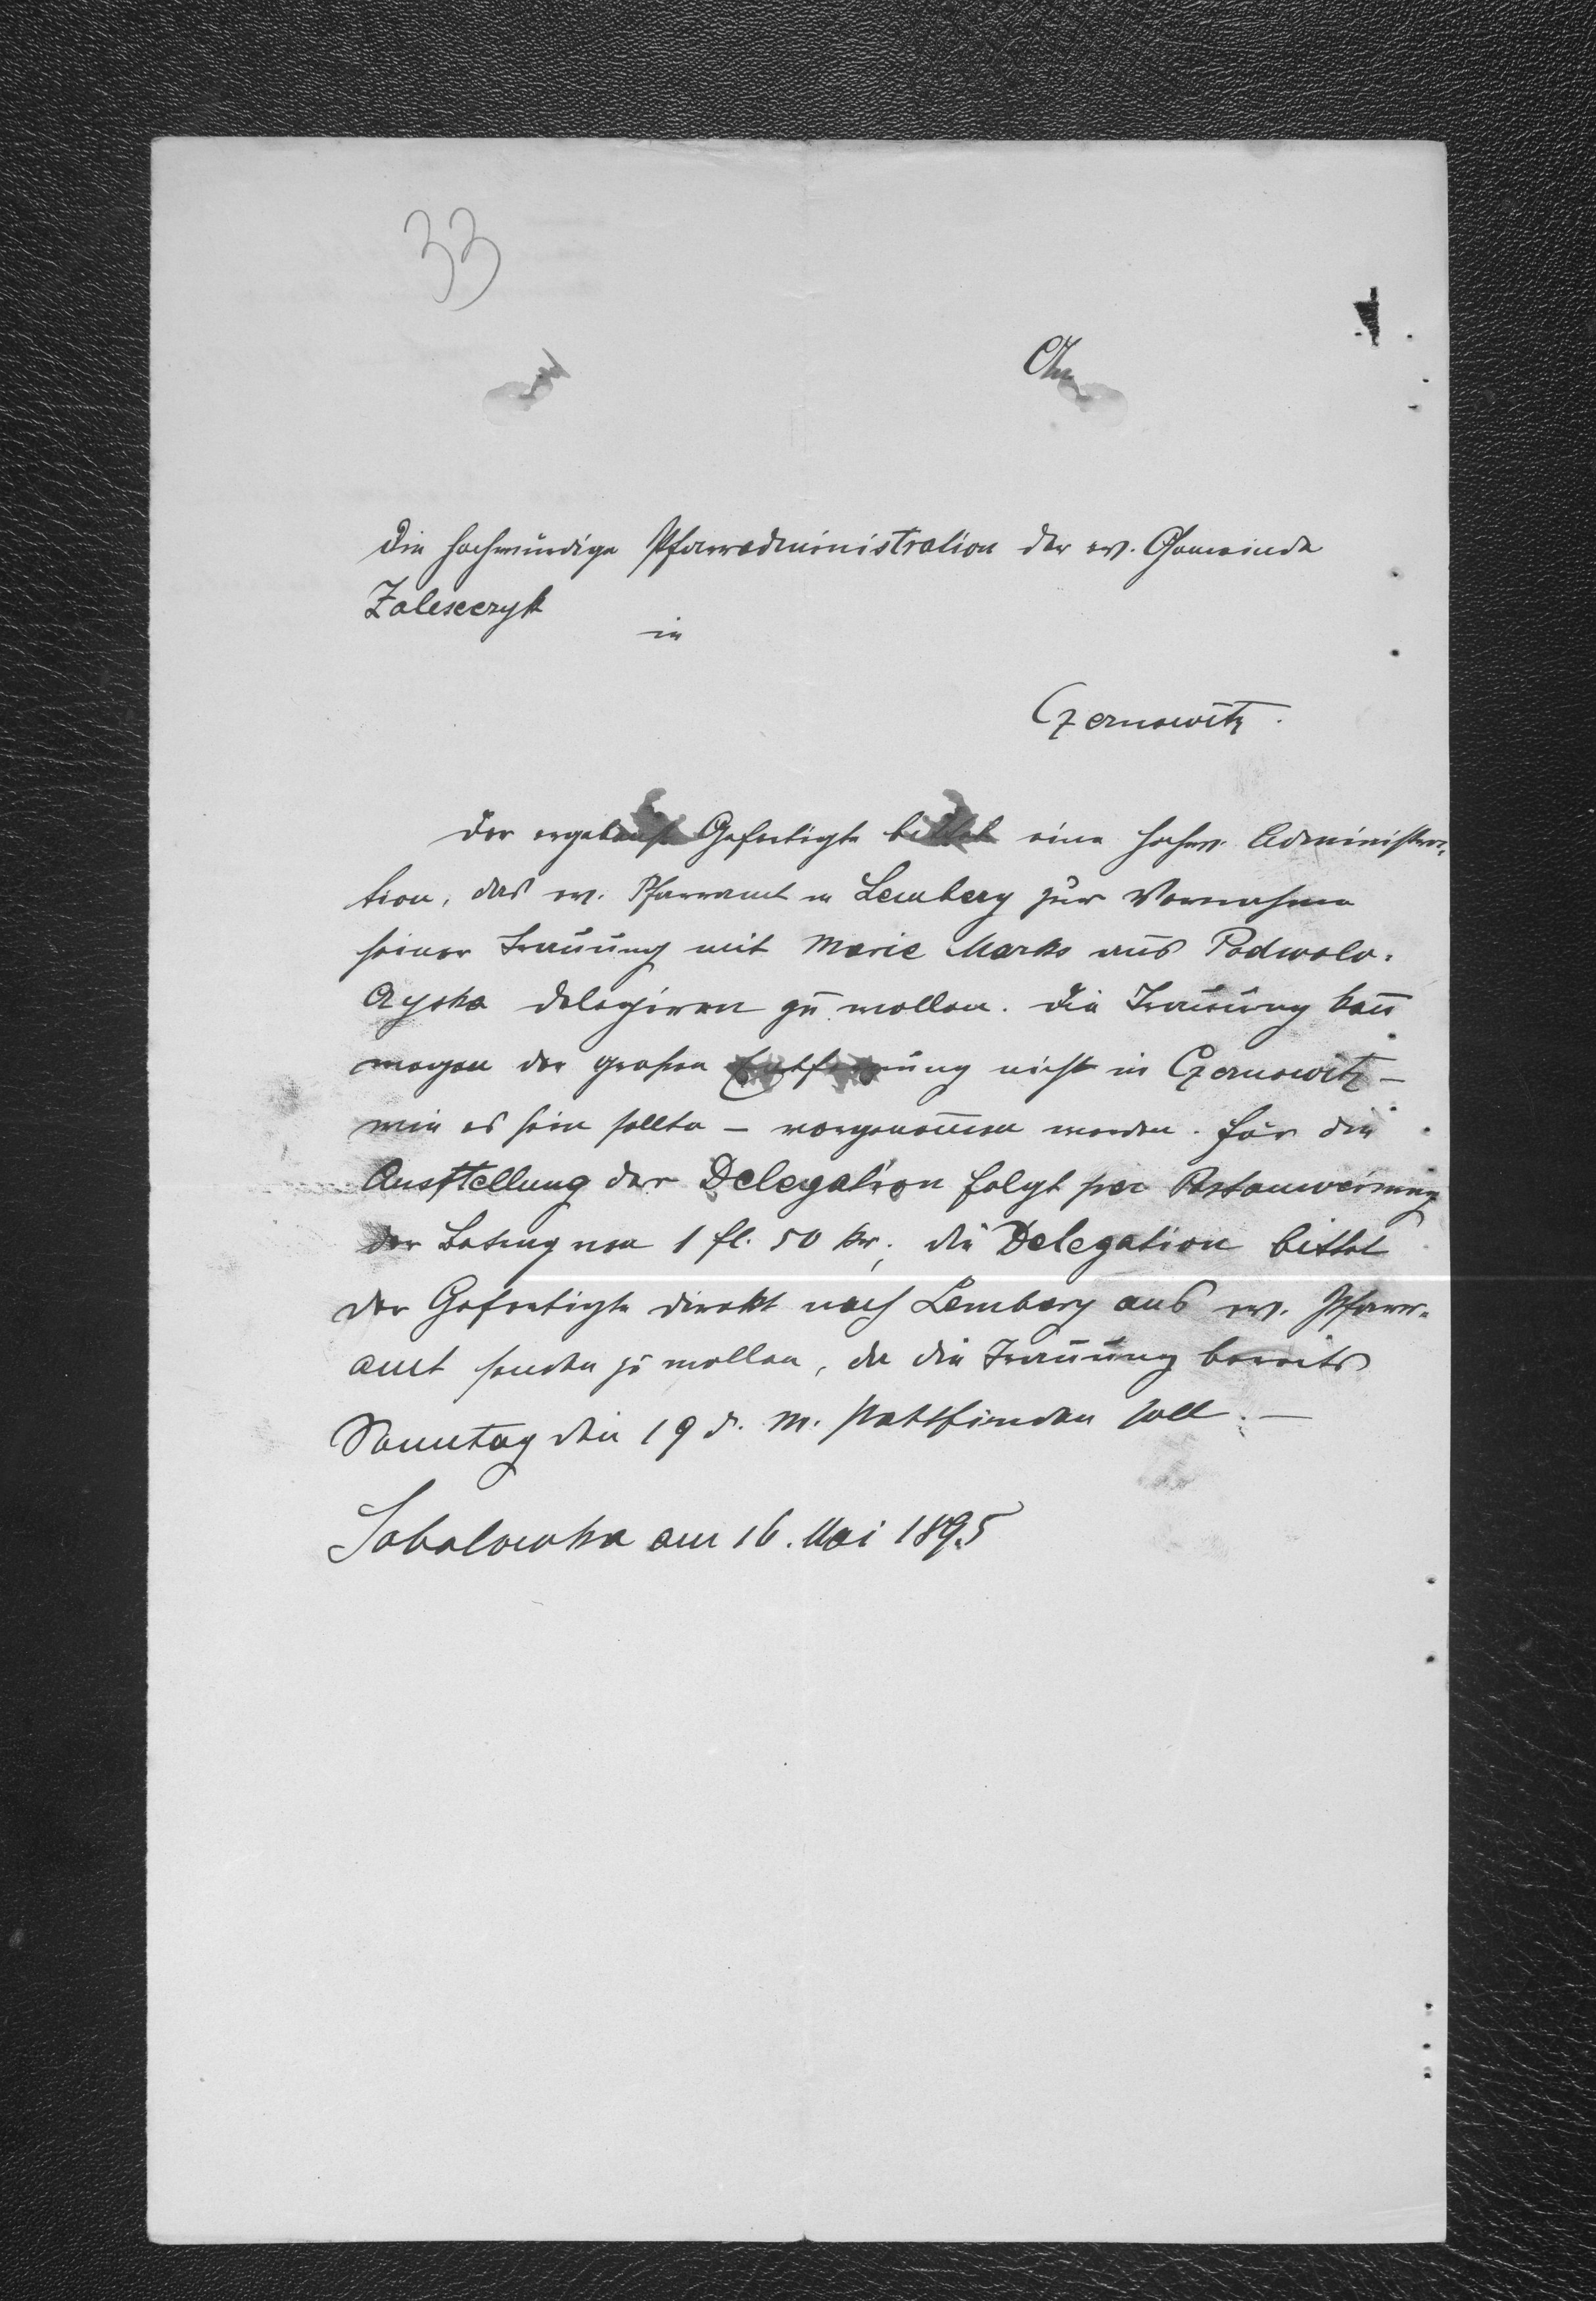 33
An
die hochwürdige Pfarradministration der ev. Gemeinde
Zalesceryk
in
Czernowitz.
Der ergebenst Gefertigte bittet eine hochw. Administra-
tion, das ev. Pfarramt in Lemberg zur Vornahme
seiner Trauung mit Marie Marks aus Podwolo-
czyska delegiren zu wollen. Die Trauung kann
wegen der großen Entfernung nicht in Czernowitz –
wie es sein sollte – vorgenommen werden. Für die
Ausstellung der Delegation folgt per Postanweisung
der Betrag von 1 fl. 50 kr; die Delegation bittet
der Gefertigte direkt nach Lemberg ans ev. Pfarr-
amt senden zu wollen, da die Trauung bereits
Sonntag den 19 d. M. stattfinden soll. –
am 16. Mai 1895